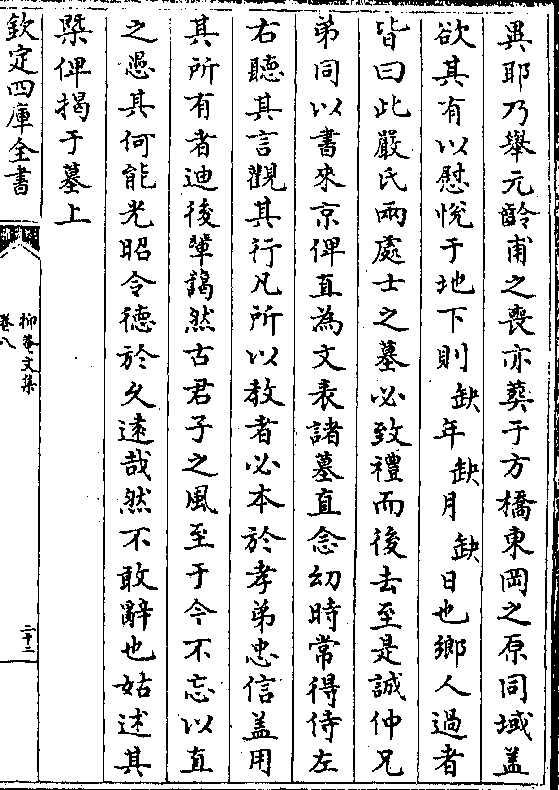 異耶乃舉元齡甫之喪亦葬于方橋東岡之原同域盖
欲其有以慰悅于地下則缺年缺月缺日也鄉人過者
皆曰此嚴氏兩處士之墓必致禮而後去至是誠仲兄
弟同以書來京俾直為文表諸墓直念幼時常得侍左
右聽其言觀其行凡所以教者必本於孝弟忠信盖用
其所有者迪後輩藹然古君子之風至于今不忘以直
之愚其何能光昭令德於久遠哉然不敢辭也姑述其
槩俾揭于墓上
欽定四庫全書
抑菴文集
卷八
二十二